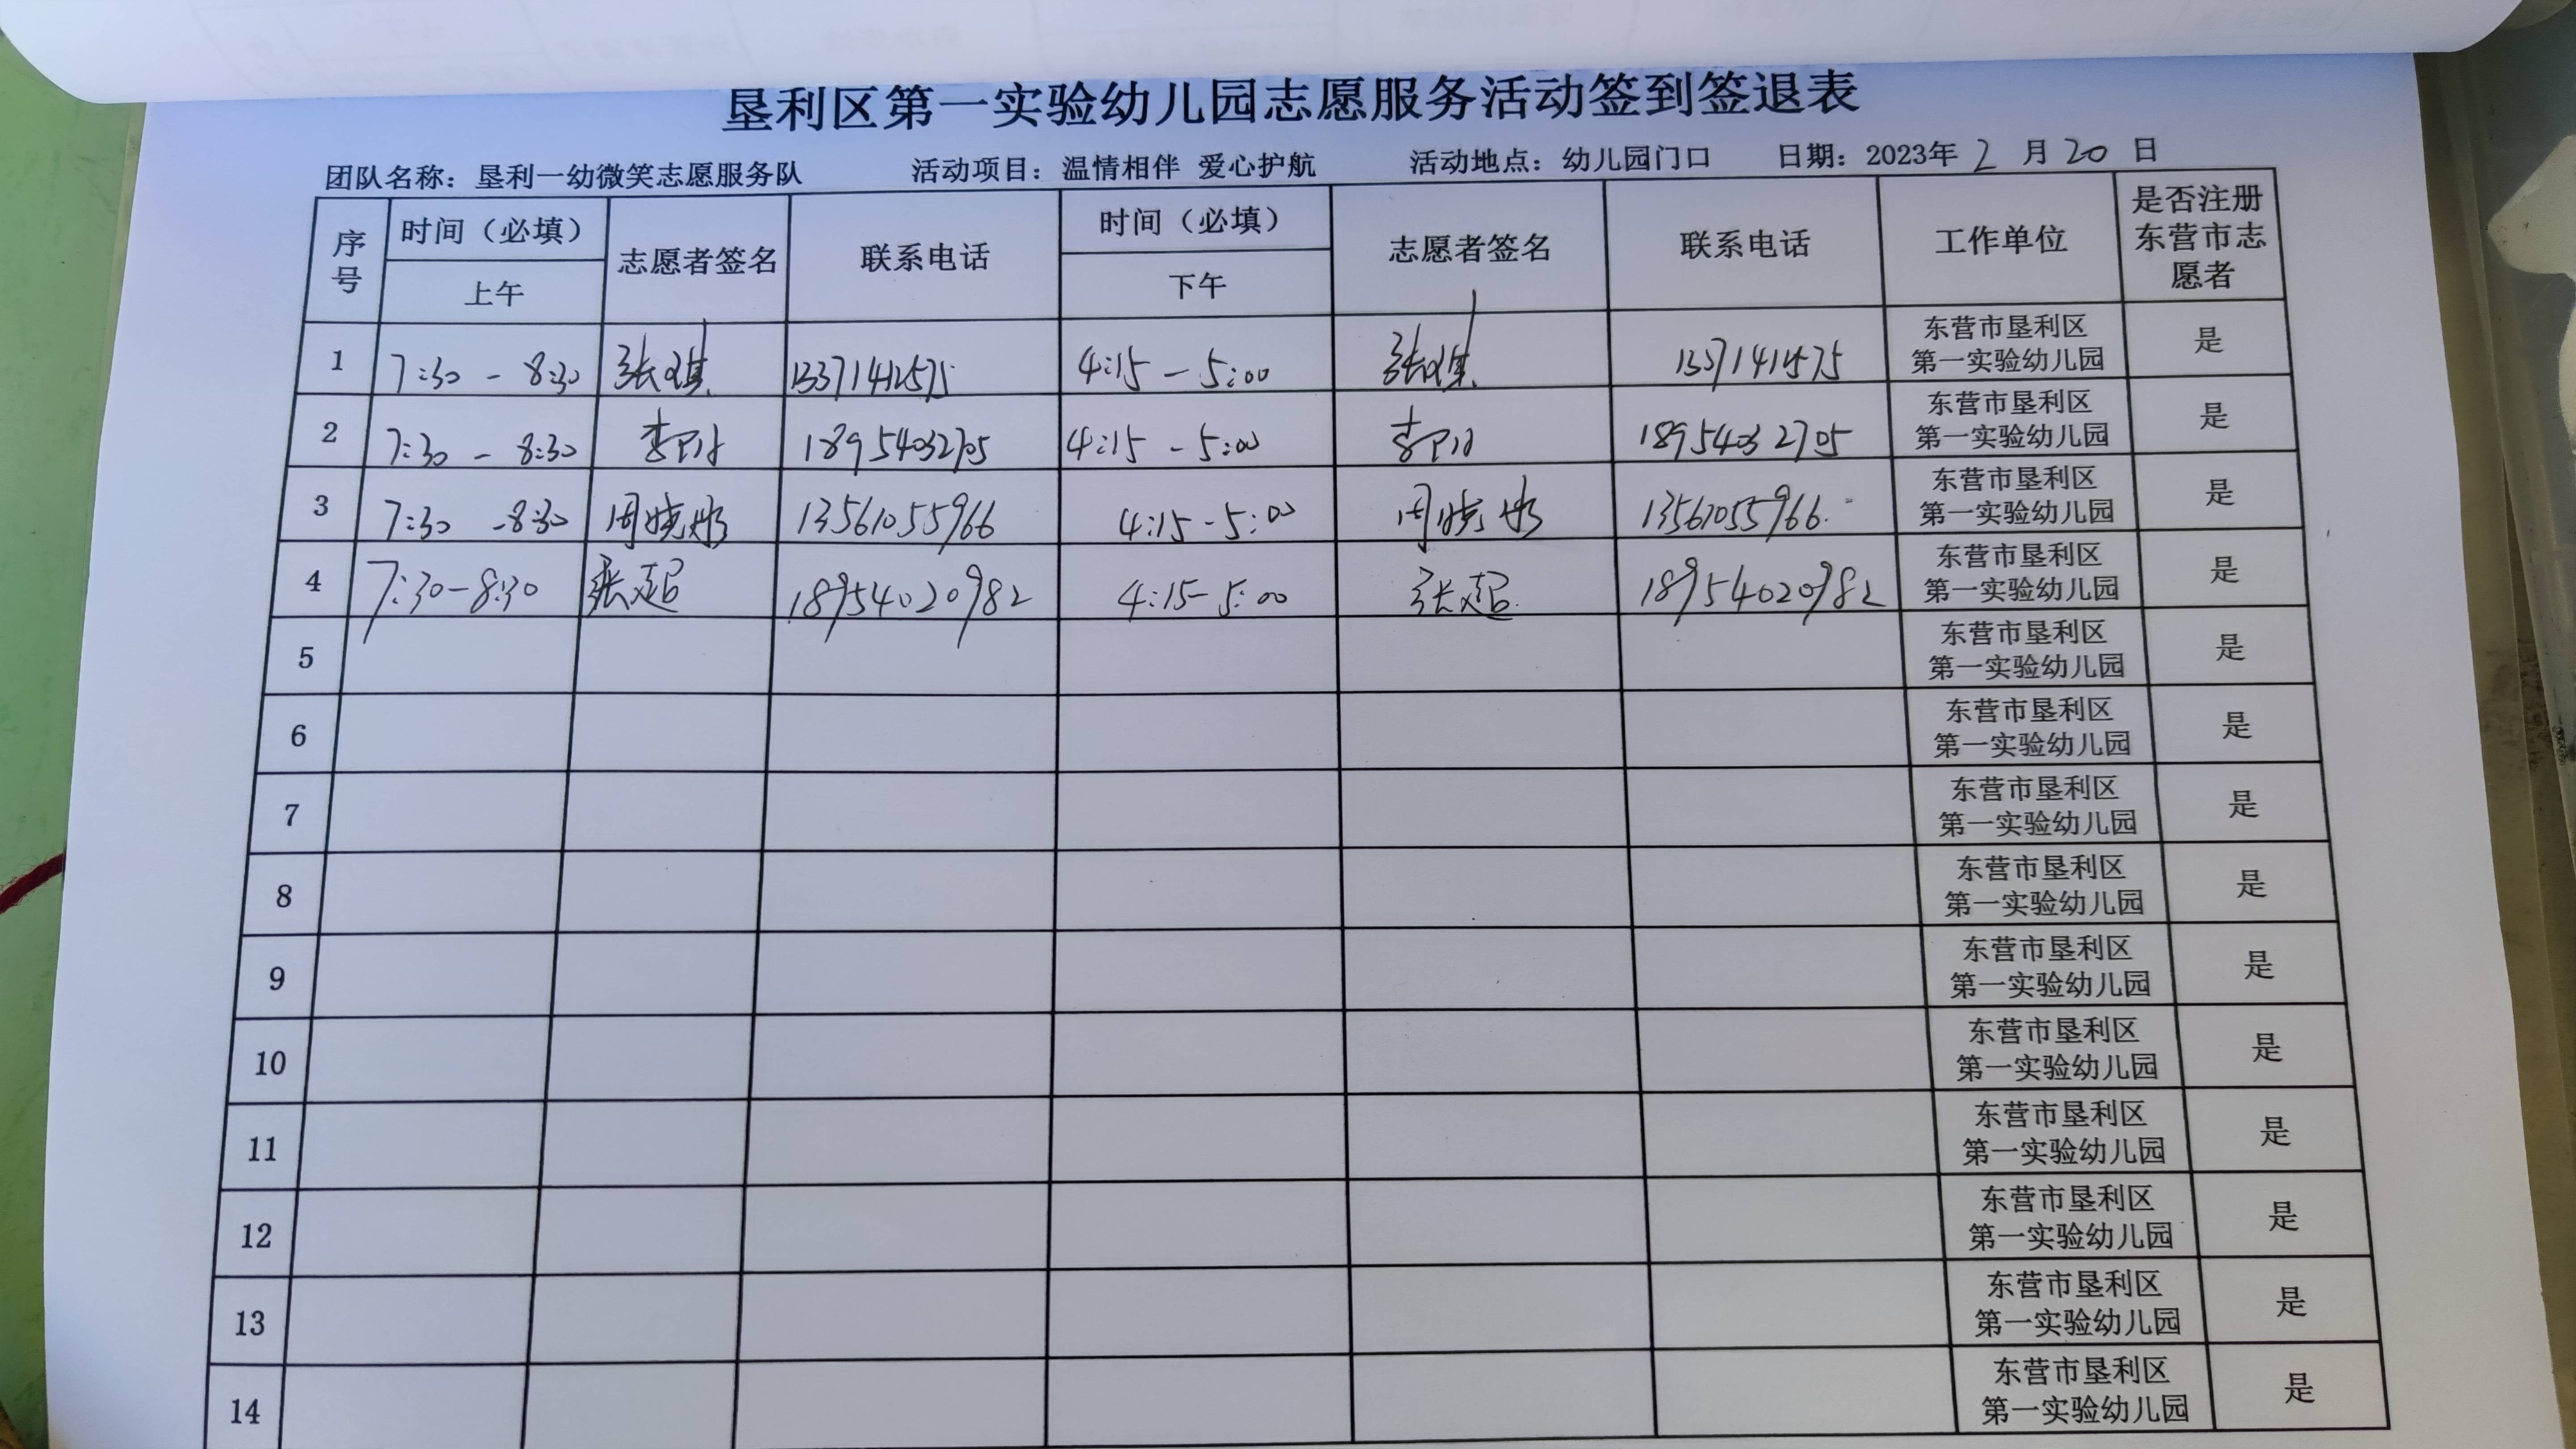 垦利区第一实验幼儿园志愿服务活动签到签退表
团队名称：垦利一幼微笑志愿服务队 活动项目：温情相伴 爱心护航 活动地点：幼儿园门口 日期：2023年 2 月 20 日
序号 时间（必填） 上午 志愿者签名 联系电话 时间（必填） 下午 志愿者签名 联系电话 工作单位 是否注册东营市志愿者
1 7:30 - 8:30 张琪 13371412575 4:15 - 5:00 张琪 13371412575 东营市垦利区第一实验幼儿园 是
2 7:30 - 8:30 18954032705 4:15 - 5:00 18954032705 东营市垦利区第一实验幼儿园 是
3 7:30 - 8:30 周晓彬 13561055966 4:15 - 5:00 周晓彬 13561055966 东营市垦利区第一实验幼儿园 是
4 7:30 - 8:30 张超 18954020982 4:15 - 5:00 张超 18954020982 东营市垦利区第一实验幼儿园 是
5 东营市垦利区第一实验幼儿园 是
6 东营市垦利区第一实验幼儿园 是
7 东营市垦利区第一实验幼儿园 是
8 东营市垦利区第一实验幼儿园 是
9 东营市垦利区第一实验幼儿园 是
10 东营市垦利区第一实验幼儿园 是
11 东营市垦利区第一实验幼儿园 是
12 东营市垦利区第一实验幼儿园 是
13 东营市垦利区第一实验幼儿园 是
14 东营市垦利区第一实验幼儿园 是